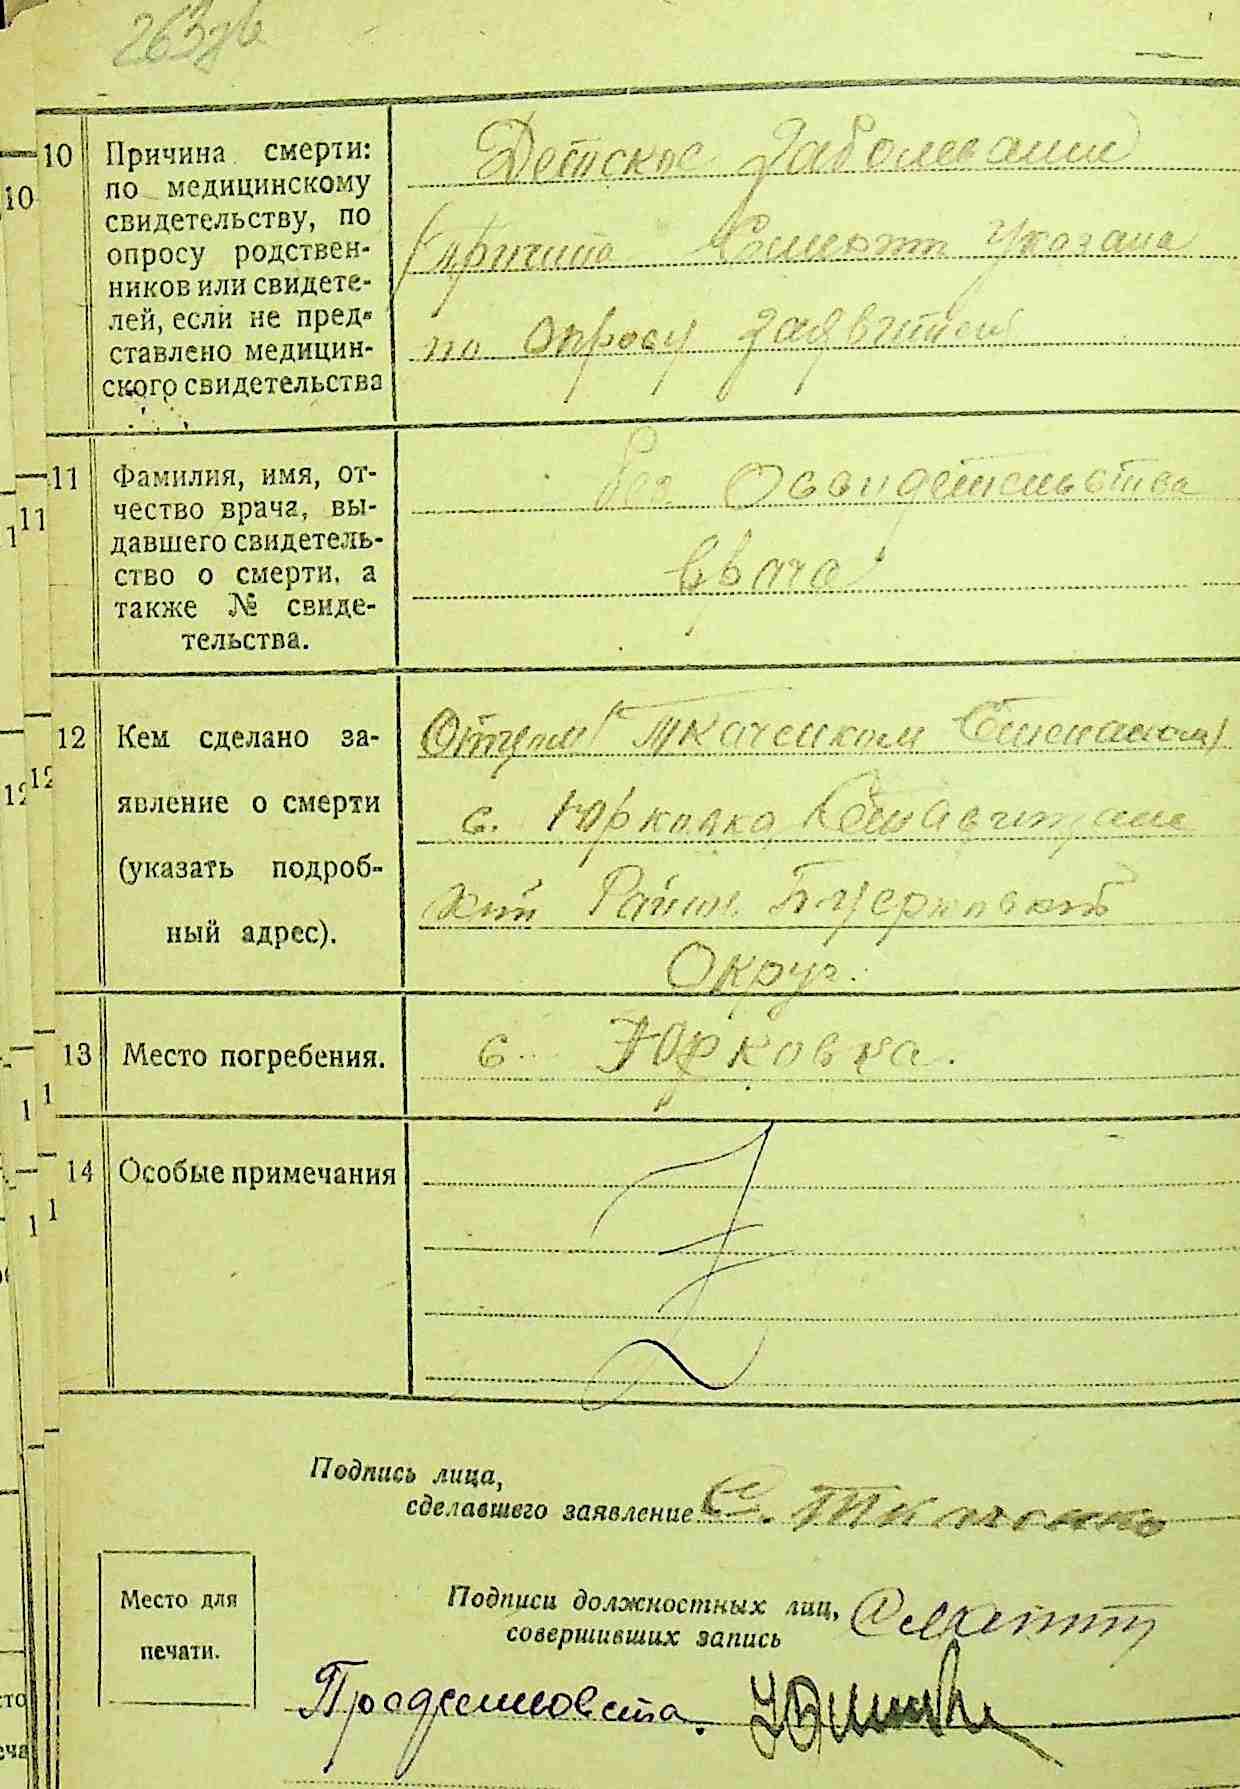 263
10
Причина смерти:
по медицинскому
свидетельству, по
опросу родствен-
ников или свидете-
лей, если не пред-
ставлено медицин-
ского свидетельства
Детское Заболевание
(причина Смерти Указана
по Опросу Заявителя
11
Фамилия, имя, от-
чество врача, вы-
давшего свидетель-
ство о смерти, а
также № свиде-
тельства.
без Освидетельства
Врача
12
Кем сделано за-
явление о смерти
(указать подроб-
ный адрес).
Отцом (Ткаченком Степаном)
с. Юрковка
кий Район
Округ.
13
Место погребения.
с. Юрковка.
14
Особые примечания
Подпись лица,
сделавшего заявление С. Ткаченко
Подписи должностных лиц,
совершивших запись
Место для
печати.